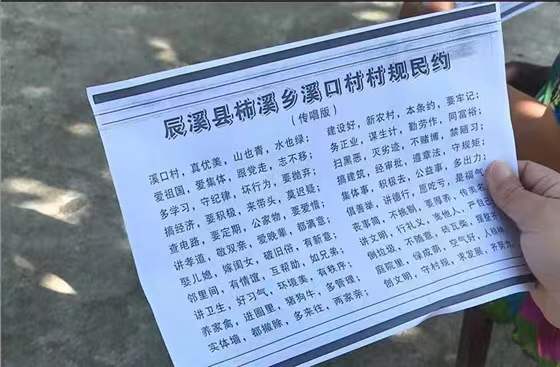 辰溪县柿溪乡溪口村村规民约
（传唱版）
溪口村，真优美，山也青，水也绿；
爱祖国，爱集体，跟党走，志不移；
多学习，守纪律，坏行为，要抛弃；
搞经济，要积极，来带头，莫迟疑；
查电路，要定期，公家物，要爱惜；
讲孝道，敬双亲，爱晚辈，都满意；
娶儿媳，嫁闺女，破旧俗，有新意；
邻里间，有情谊，互帮助，如兄弟；
讲卫生，好习气，环境美，有秩序；
养家禽，进圈里，猪狗牛，多管理；
实体墙，都撤除，多来往，两家亲；
建设好，新农村，本条约，要牢记；
务正业，谋生计，勤劳作，同富裕；
扫黑恶，灭劣迹，不赌博，禁陋习；
搞建筑，经审批，遵章法，守规矩；
集体事，积极去，公益事，多出力；
倡善举，讲德行，愿吃亏，是福气
丧事简，不挑剔，要厚养，传美
讲文明，行礼义，张他人，严自
倒垃圾，不随意，砖瓦柴，摆整
庭院里，保成荫，空气好，人
创文明，守村规，求发展，齐努